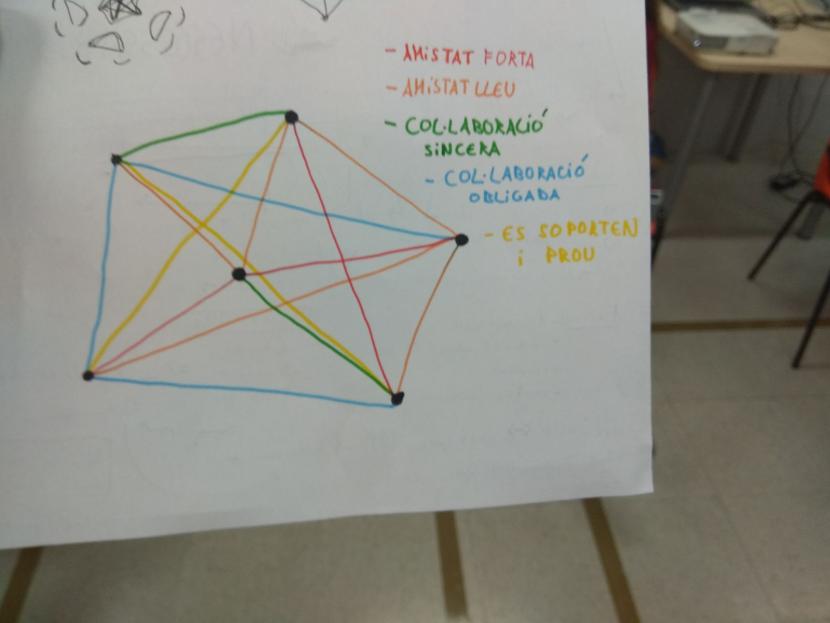 - AMiSTAT FORTA
- AMiSTAT LLEU
- COL·LABORACIÓ
SiNCERA
- COL·LABORACIÓ
OBLiGADA
- ES SOPORTEN
i PROU